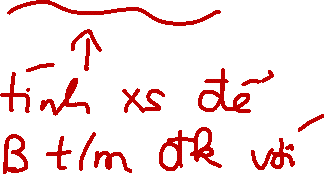 tính xs để
B t/m đk với